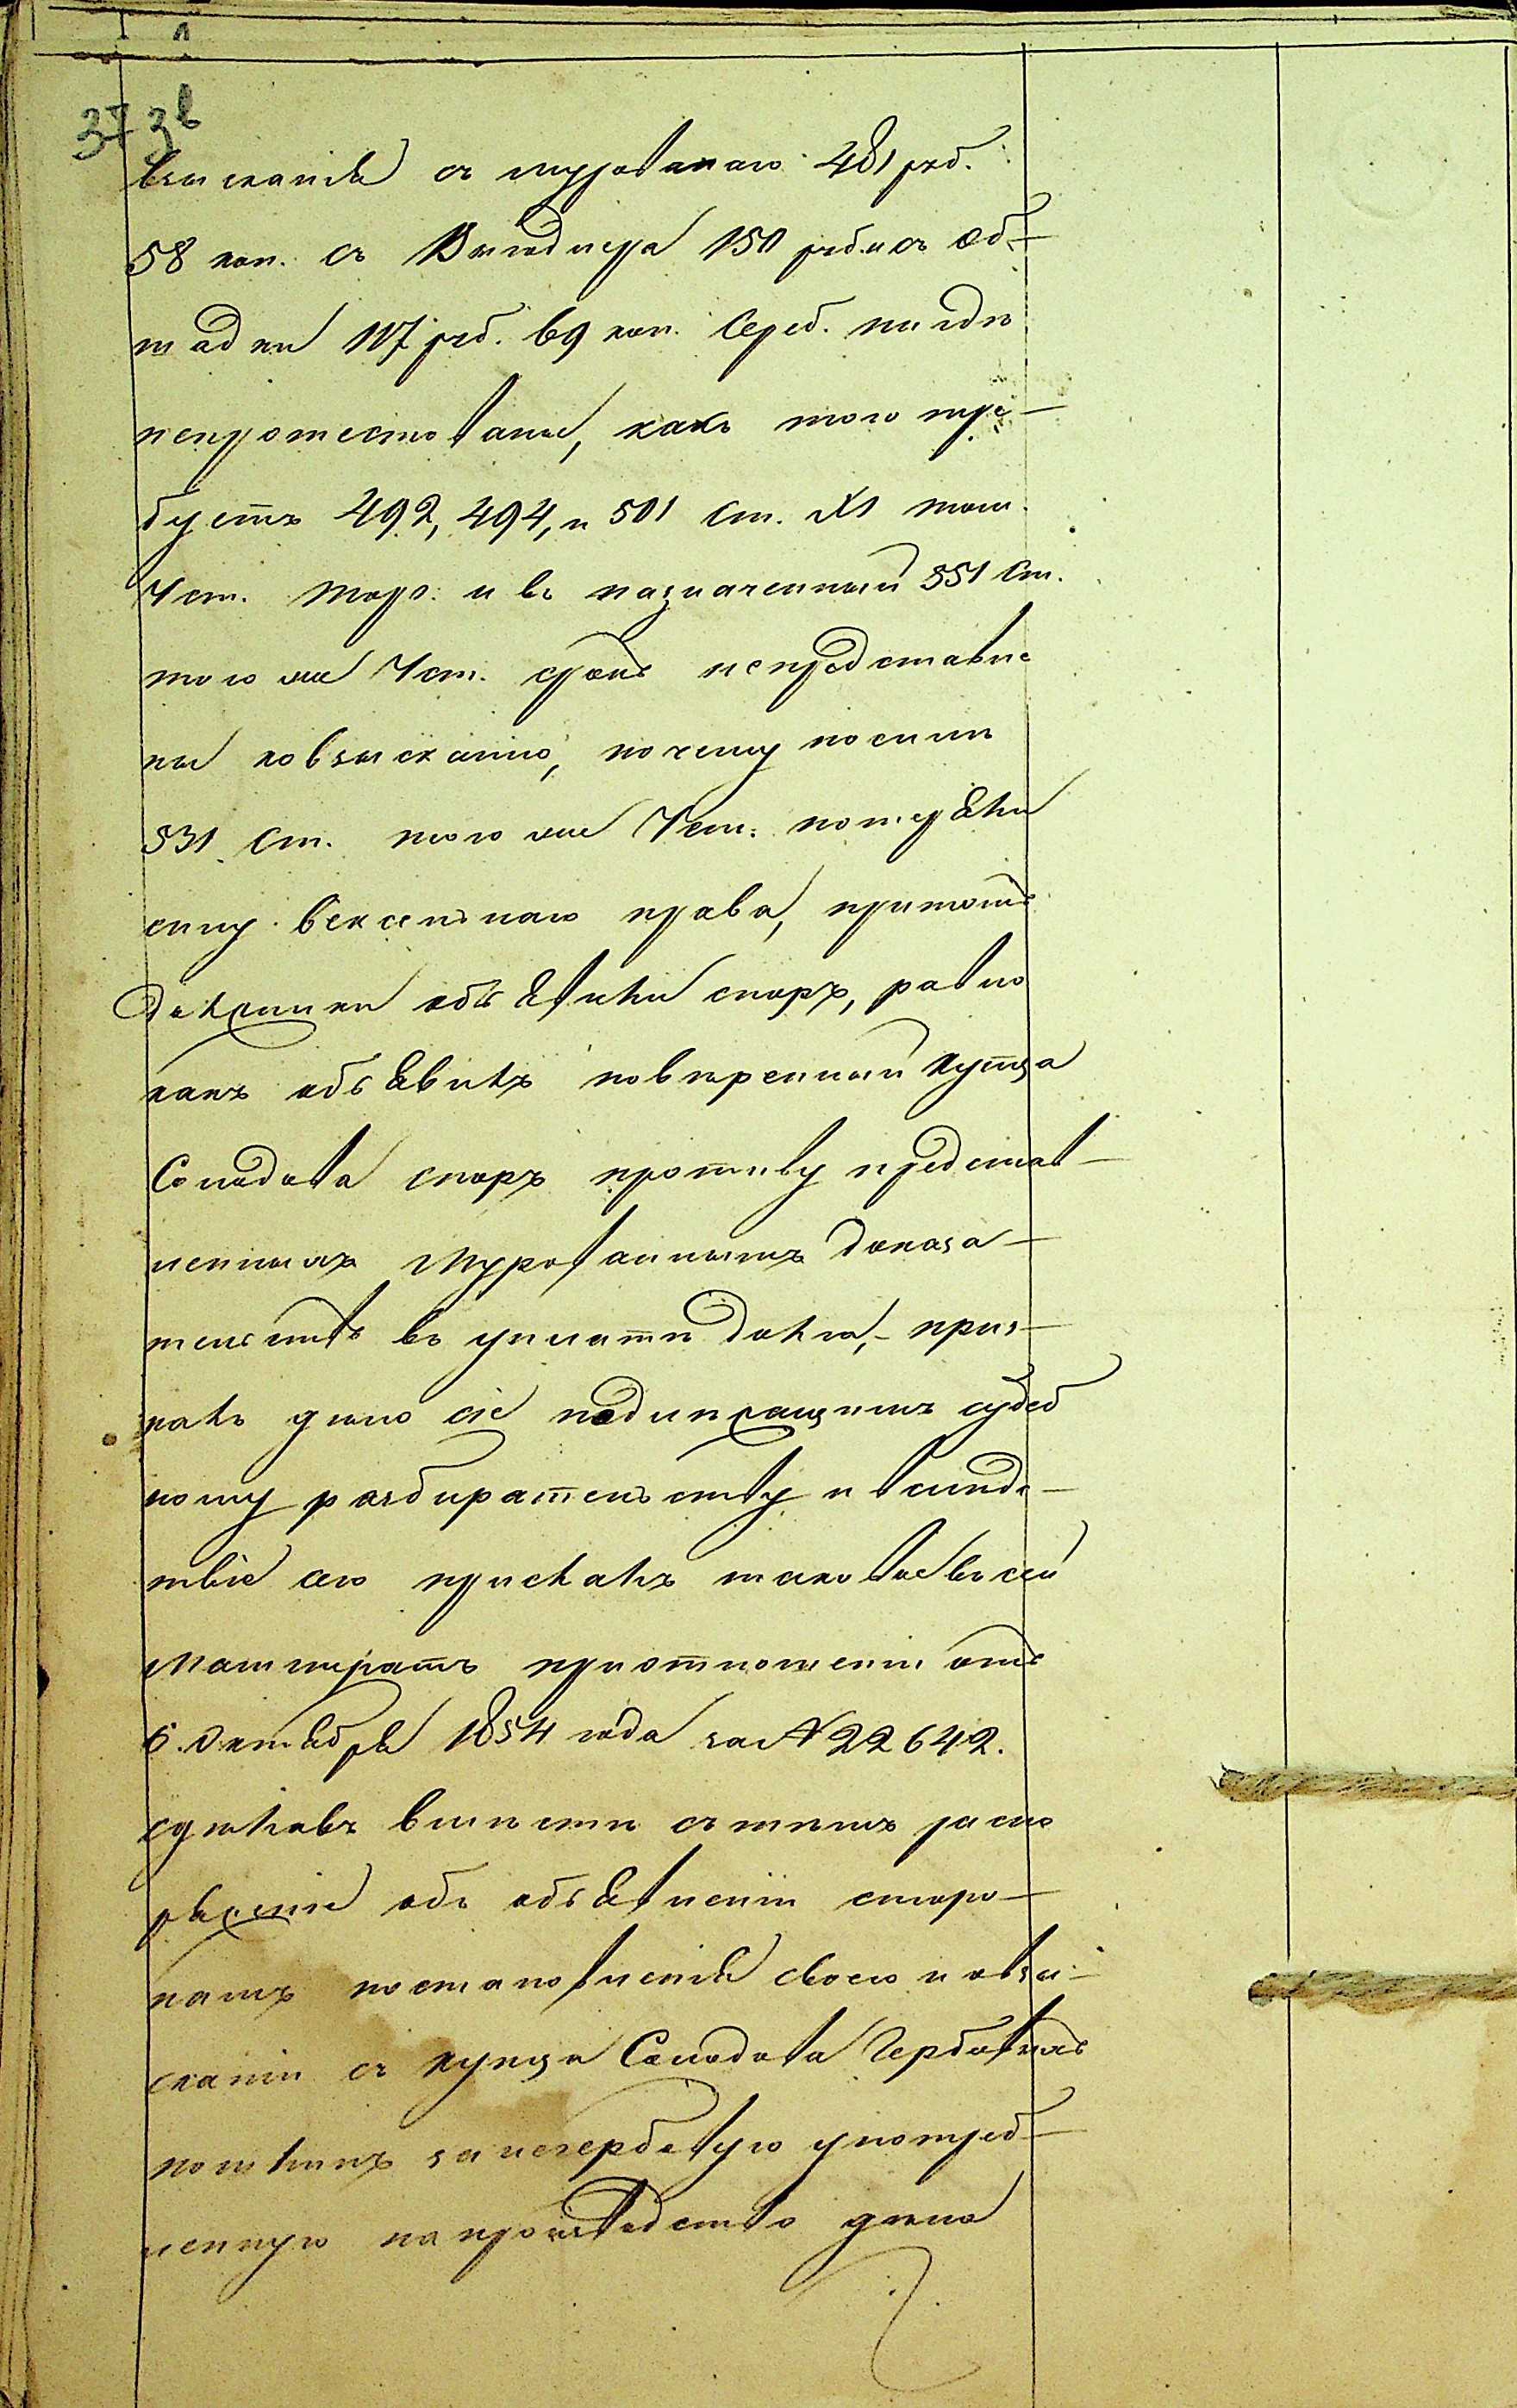 373 в
взысканiя съ Мурованаго 481 руб.
58 коп. съ Вигдиера 150 руб. и съ Об-
тадки 117 руб. 69 коп. сереб. нигдѣ
непротестованы, какъ того тре-
буетъ 492, 494, и 501 ст. XI том.
Уст. Торг. и въ назначенный 551 ст.
того же Уст. срокъ непредставле
ны ко взысканiю, почему по силѣ
531 ст. того же Уст. потеряли
силу вексельнаго права, притомъ
должники объявили споръ, равно
какъ объявилъ повѣренный купца
Солодова споръ противу представ-
ленныхъ Мурованнымъ доказа-
тельствъ въ уплатѣ долга, – приз-
налъ дѣло сiе подлежащимъ судеб
ному разбирательству и вслѣд-
ствiе сего прислалъ таковое въ сей
Магистратъ при отношенiи отъ
6 Октября 1854 года за № 22642.
сдѣлавъ вмѣстѣ съ тѣмъ распо
ряженiе объ объявленiи сторо-
намъ постановленiя своего и о взы-
сканiи съ купца Солодова Гербовыхъ
пошлинъ за негербовую употреб-
ленную на производство дѣла